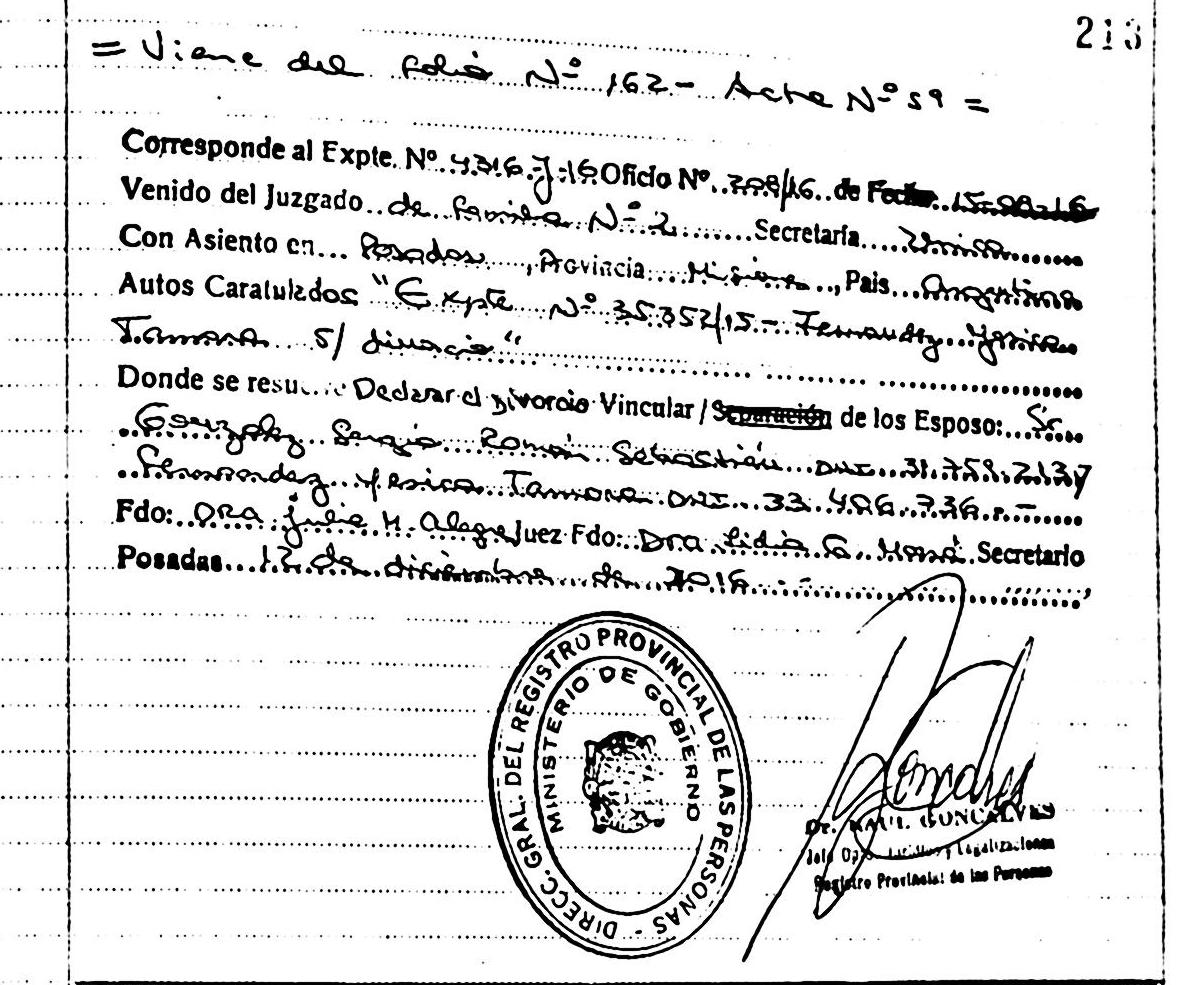 213
= Viene del folio Nº 162 - Acta Nº 59 =
Corresponde al Expte. Nº 4316-J-16 Oficio Nº 398/16 de Fecha 15-08-16
Venido del Juzgado de familia Nº 2 Secretaría Única
Con Asiento en Posadas, Provincia Misiones, Pais Argentina
Autos Caratulados "Expte Nº 35352/15 - Fernandez Yesica
Tamara s/ divorcio"
Donde se Declarar el Divorcio Vincular / Separación de los Esposo: Sr.
Gonzalez Sergio Román Sebastián DNI 31.759.213 y
Fernandez Yesica Tamara DNI 33.486.736.-
Fdo: DRA Julia H. Alegre Juez Fdo: Dra Lidia Secretario
Posadas 12 de diciembre de 2016
DIRECC. GRAL. DEL REGISTRO PROVINCIAL DE LAS PERSONAS -
MINISTERIO DE GOBIERNO
Dr. RAUL GONCALVES
y Legalizaciones
Registro Provincial de las Personas